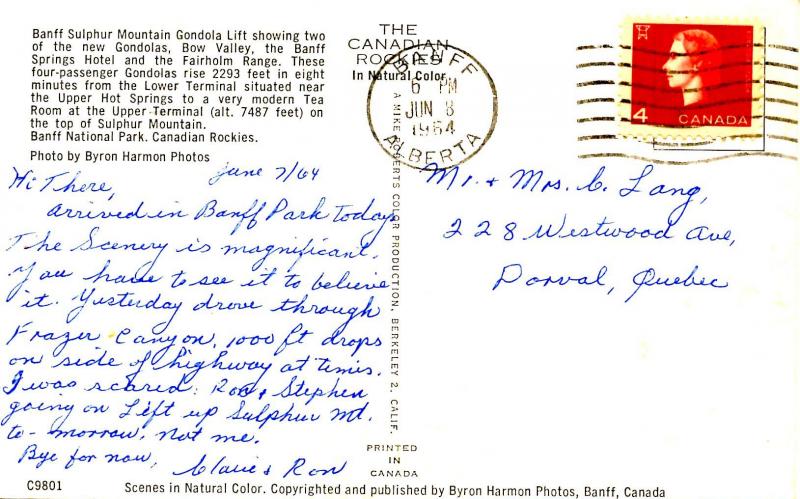 Banff Sulphur Mountain Gondola Lift showing two
of the new Gondolas, Bow Valley, the Banff
Springs Hotel and the Fairholm Range. These
four-passenger Gondolas rise 2293 feet in eight
minutes from the Lower Terminal situated near
the Upper Hot Springs to a very modern Tea
Room at the Upper Terminal (alt. 7487 feet) on
the top of Sulphur Mountain.
Banff National Park. Canadian Rockies.
Photo by Byron Harmon Photos
June 7/64
Hi There,
Arrived in Banff Park today
The Scenery is magnificent.
You have to see it to believe
it. Yesterday drove through
Frazer Canyon, 1000 ft drops
on side of highway at times.
I was scared. Ron & Stephen
going on Lift up Sulphur Mt.
to-morrow. Not me.
Bye for now,
Claire & Ron
C9801
THE
CANADIAN
ROCKIES
In Natural Color
A MIKE ROBERTS COLOR PRODUCTION, BERKELEY 2, CALIF.
PRINTED
IN
CANADA
BANFF
6 PM
JUN 8
1964
ALBERTA
4
CANADA
Mr. & Mrs. C. Lang,
228 Westwood Ave,
Dorval, Quebec
Scenes in Natural Color. Copyrighted and published by Byron Harmon Photos, Banff, Canada